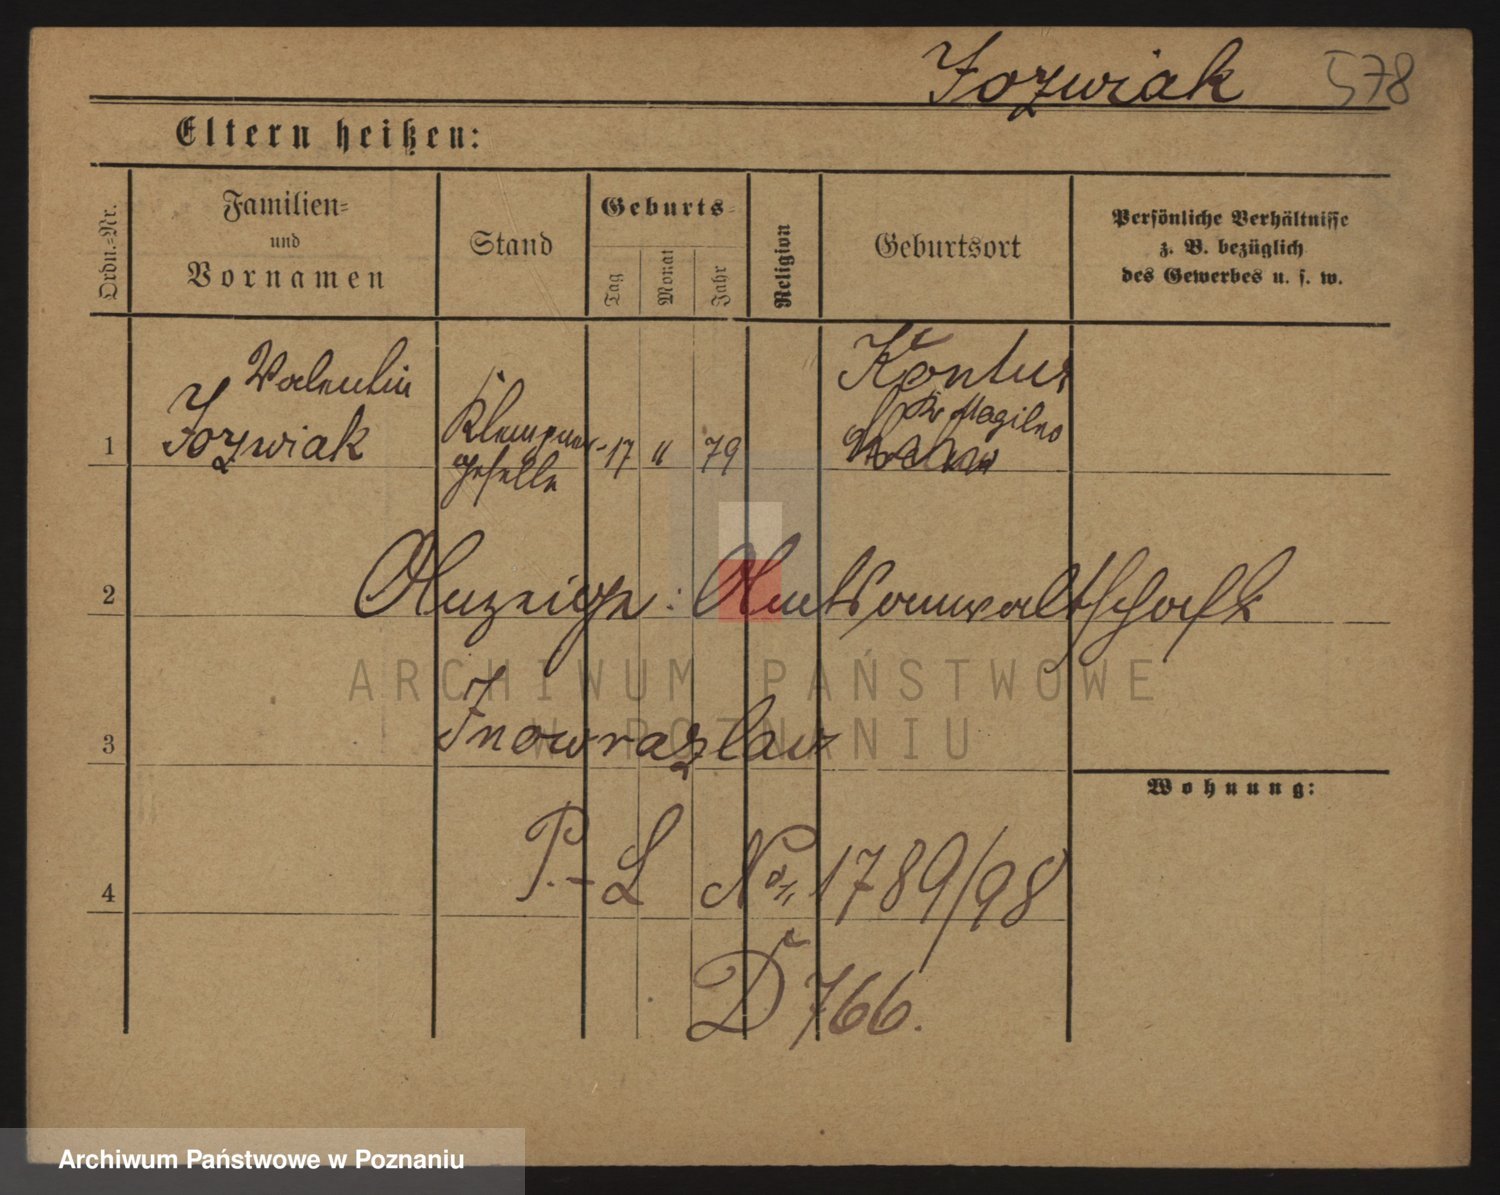 Jozwiak 578
Eltern heißen:
Ordn.-Nr.
Familien-
und
Vornamen
Stand
Geburts-
Tag
Monat
Jahr
Religion
Geburtsort
Persönliche Verhältnisse
z. B. bezüglich
des Gewerbes u. s. w.
1
Valentin
Jozwiak
Klempner-
geselle
17 " 79
Kr Mogilno
2
Anzeige: Amtsanwaltschaft
3
Inowrazlaw
Wohnung:
4
P.-L No 1789/98
D 766.
ARCHIWUM PAŃSTWOWE
W POZNANIU
Archiwum Państwowe w Poznaniu